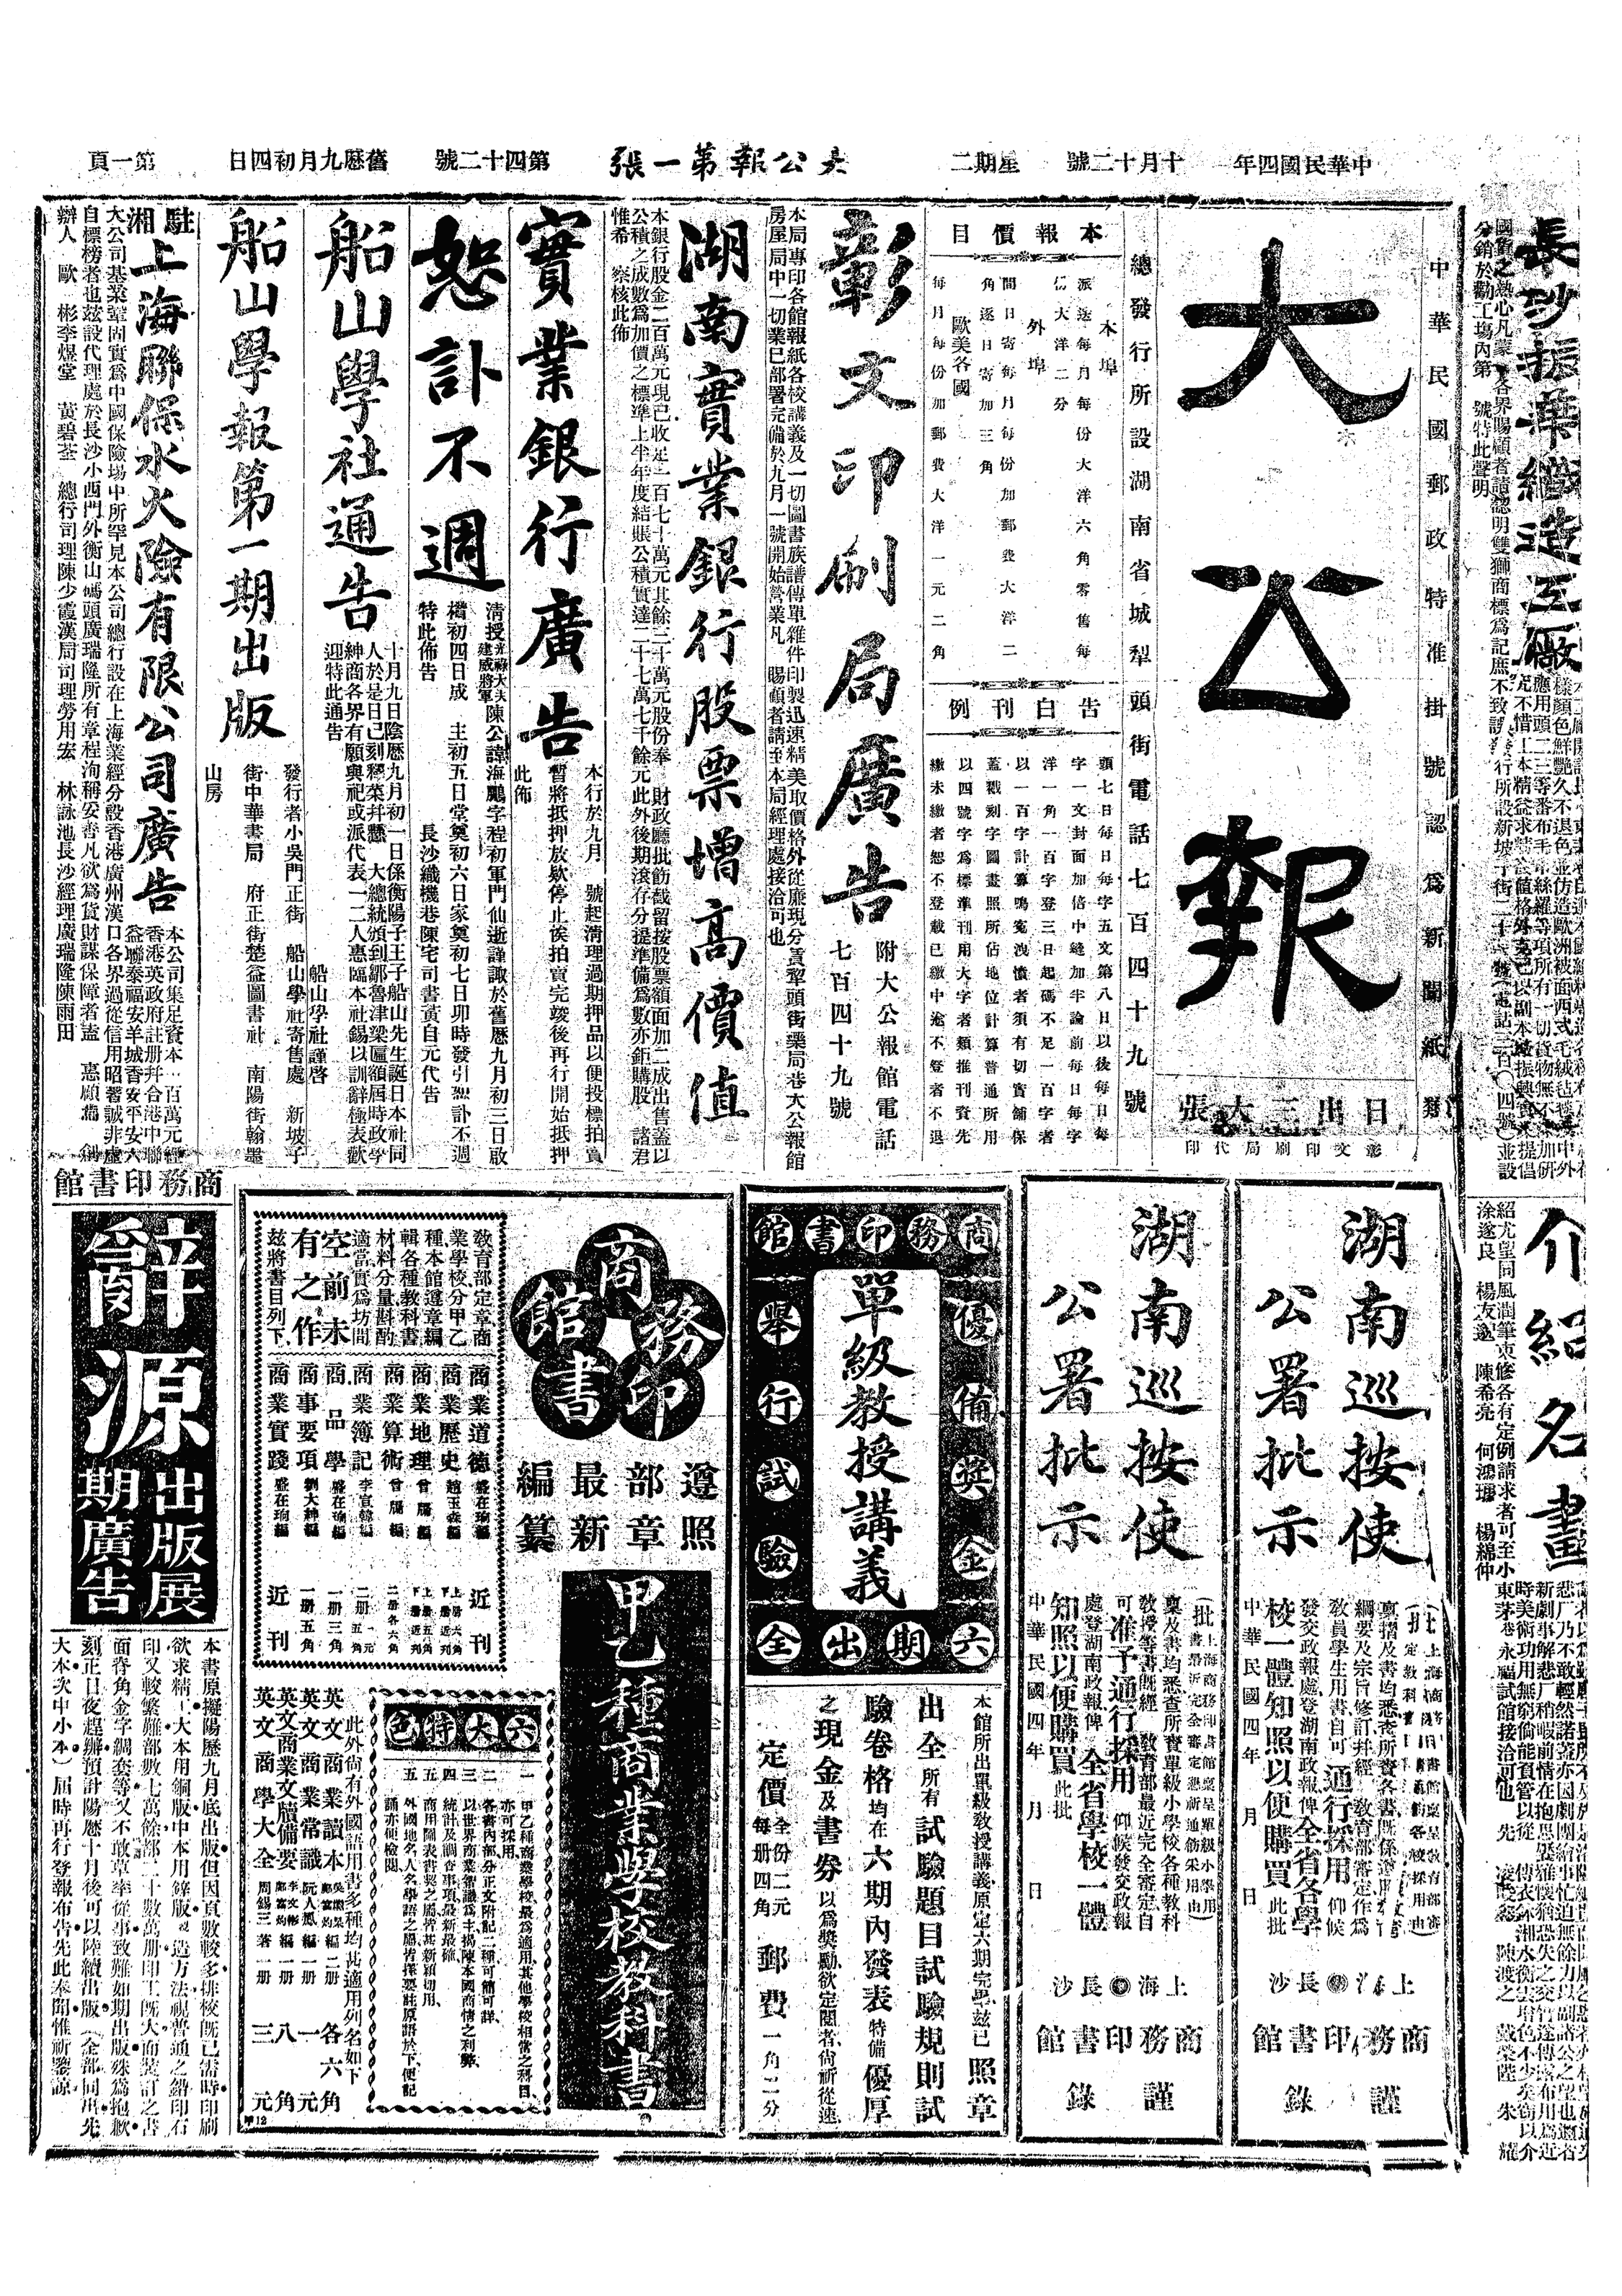 中華民國四年
十月十二號
星期二
大公報第一張
第四十二號
舊曆九月初四日
第一頁
長沙振華織造工廠
國貨之熱心凡蒙各界賜顧者請認明雙獅商標為記庶不致誤
分銷於勸工場內第 號特此聲明
介紹名畫
涂遂良 楊友邈 陳希亮 何鴻璠 楊綿仲
中華民國郵政特准掛號認為新聞紙類
大公報
日出三大張
彰文印刷局代印
總發行所設湖南省城犁頭街電話七百四十九號
本報價目
本埠
派送每月每份大洋六角零售每
份大洋二分
外埠
間日寄每月每份加郵費大洋二
角逐日寄加三角
歐美各國
每月每份加郵費大洋一元二角
告白刊例
頭七日每日每字五文第八日以後每日每
字一文封面加倍中縫加半論前每日每字
洋一角一百字登三日起碼不足一百字者
以一百字計算鳴寃洩憤者須有切實舖保
蓋戳刻字圖畫照所佔地位計算普通所用
以四號字為標準刊用大字者類推刊資先
繳未繳者恕不登載已繳中途不登者不退
彰文印刷局廣告
附大公報館電話
七百四十九號
本局專印各館報紙各校講義及一切圖書族譜傳單雜件印製迅速精美取價格外從廉現分賃犁頭街藥局巷大公報館
房屋局中一切業已部署完備於九月一號開始營業凡 賜顧者請至本局經理處接洽可也
湖南實業銀行股票增高價值
本銀行股金二百萬元現已收足一百七十萬元其餘三十萬元股份奉 財政廳批飭截留按股票額面加二成出售蓋以
公積之成數為加價之標準上半年度結賬公積實達二十七萬七千餘元此外後期滾存分提準備為數亦鉅購股 諸君
惟希 察核此佈
實業銀行廣告
本行於九月 號起清理過期押品以便投標拍賣
暫將抵押放欵停止俟拍賣完竣後再行開始抵押
此佈
恕訃不週
清授光祿大夫建威將軍陳公諱海鵬字程初軍門仙逝謹諏於舊曆九月初三日啟
櫕初四日成 主初五日堂奠初六日家奠初七日卯時發引恕訃不週
特此佈告 長沙織機巷陳宅司書黃自元代告
船山學社通告
十月九日陰歷九月初一日係衡陽子王子船山先生誕日本社同
人於是日已刻釋菜幷懸 大總統頒到鄒魯津梁匾額屆時政學
紳商各界有願與祀或派代表一二人惠臨本社錫以訓辭極表歡
迎特此通告 船山學社謹啓
船山學報第一期出版
發行者小吳門正街 船山學社寄售處 新坡子
街中華書局 府正街楚益圖書社 南陽街翰墨
山房
駐湘上海聯保水火險有限公司廣告
本公司集足資本一百萬元經
香港英政府註册幷合港中聯
益聯泰福安羊城香安平安六
大公司基業鞏固實為中國保險塲中所罕見本公司總行設在上海業經分設香港廣州漢口各界過從信用昭著誠非虛
自標榜者也茲設代理處於長沙小西門外衡山碼頭廣瑞隆所有章程洵稱妥善凡欲為貨財謀保障者盍 惠顧焉 創
辦人 歐 彬李煜堂 黃碧荃 總行司理陳少霞漢局司理勞用宏 林詠池長沙經理廣瑞隆陳雨田
湖南巡按使公署批示
校一體知照以便購買此批
中華民國四年 月 日
上海長沙
商務印書館
謹錄
湖南巡按使公署批示
稟及書均悉查所賫單級小學校各種教科
教授等書既經 教育部最近完全審定自
可准予通行採用仰候發交政報
處登湖南政報俾 全省學校一體
知照以便購買此批
中華民國四年 月 日
上海長沙
商務印書館
謹錄
商務印書館
優備獎金
舉行試驗
單級教授講義
六期出全
本館所出單級教授講義原定六期完畢茲已照章
出全所有試驗題目試驗規則試
驗卷格均在六期內發表特備優厚
之現金及書劵以為獎勵欲定閱者尙祈從速
定價全份二元每册四角 郵費一角二分
商務印書館
遵照部章最新編纂
甲乙種商業學校教科書
教育部定章商
業學校分甲乙
種本館遵章編
輯各種教科書
材料分量斟酌
適當實為坊間
空前未
有之作
茲將書目列下
商業道德 盛在珣編 近刊
商業歷史 趙玉森編 上册六角 下册近刊
商業地理 曾牖編 上册五角 下册近刊
商業算術 曾牖編 二册各六角
商業簿記 李宣韓編 二册一元五角
商品學 盛在珦編 一册三角
商事要項 劉大紳編 一册五角
商業實踐 盛在珦編 近刊
六大特色
一 甲乙種商業學校最為適用其他學校相當之科目亦可採用
二 各書內部分正文附記二種可簡可詳
三 以世界商業智識為主揭陳本國商情之利弊
四 統計及調查事項最新最確
五 商用圖表書契之屬皆甚新穎切用
五 外國地名人名學語之屬皆擇要註原語於下便記誦亦便檢閱
此外尚有外國語用書多種均甚適用列名如下
英文商業讀本 二册 各六角
英文商業常識 阮人鳳編 一册 一元
英文商業文牘備要 一册 八角
英文商學大全 周錫三著 一册 三元
商務印書館
辭源
出版展期廣告
本書原擬陽歷九月底出版但因頁數較多排校既已需時印刷
欲求精工大本用銅版中本用鋅版製造方法視普通之鉛印石
印又較繁難部數七萬餘部二十數萬册印工既大而裝訂之書
面脊角金字綢套等又不敢草率從事致難如期出版殊為抱歉
刻正日夜趕辦預計陽歷十月後可以陸續出版(全部同出先
大本次中小本)屆時再行登報布吿先此奉聞惟祈鑒諒